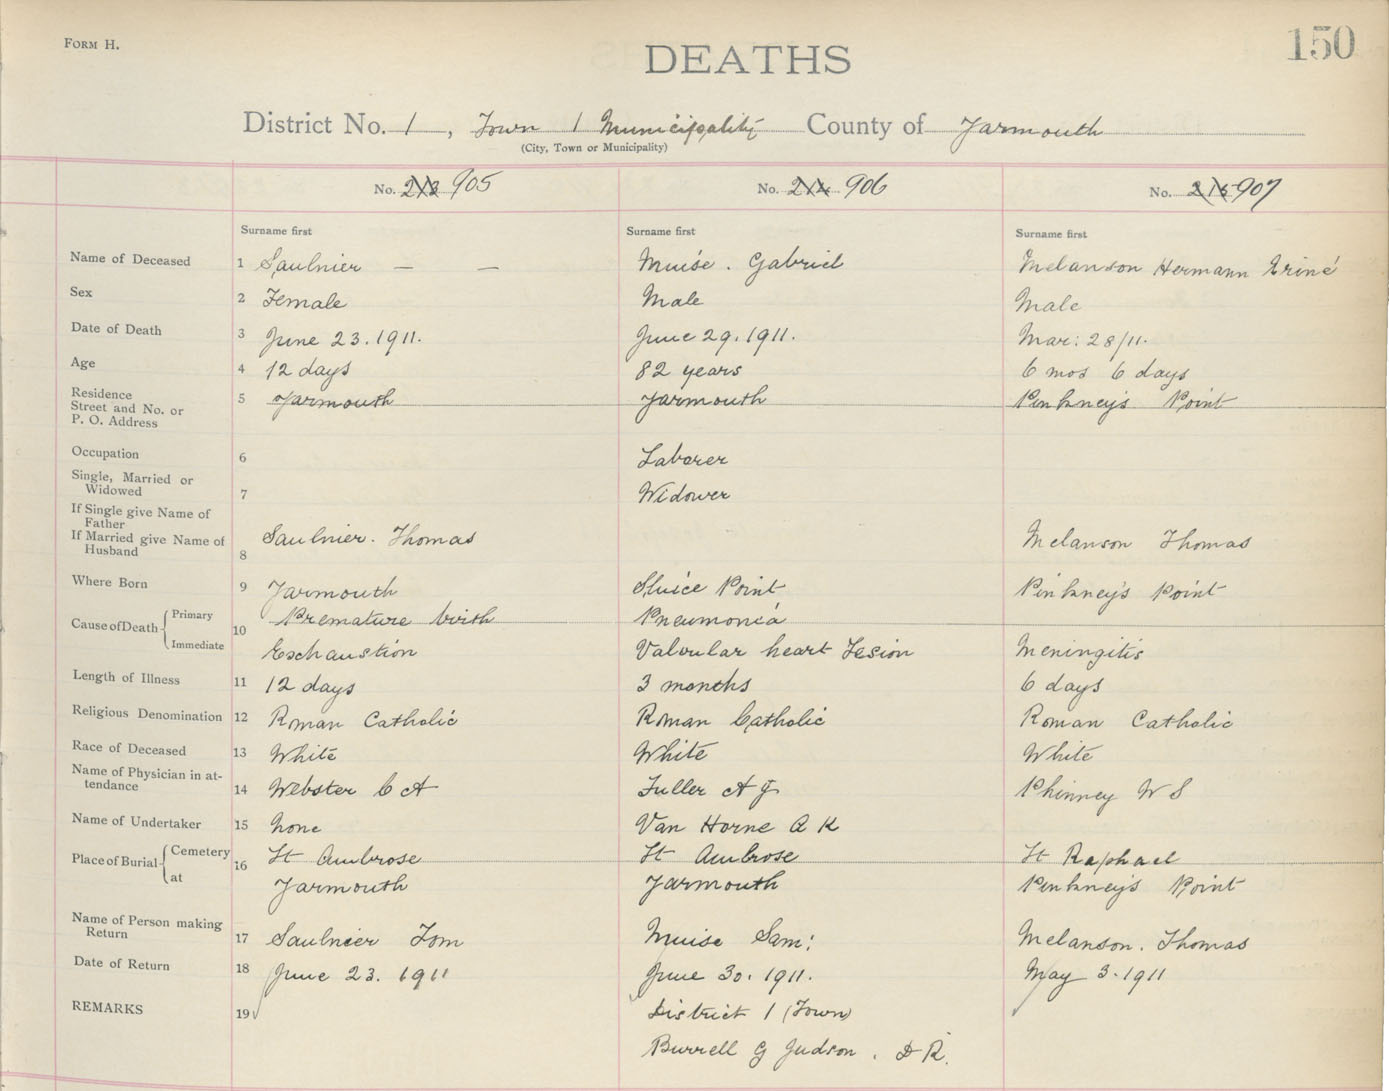 FORM H.
150
DEATHS
District No. 1, Town 1 Municipality County of Yarmouth
(City, Town or Municipality)
No. 213 905 No. 214 906 No. 215 907
Surname first Surname first Surname first
Name of Deceased 1 Saulnier — — Muise. Gabriel Melanson Hermann Eriné
Sex 2 Female Male Male
Date of Death 3 June 23. 1911. June 29. 1911. Mar: 28/11.
Age 4 12 days 82 years 6 mos 6 days
Residence
Street and No. or 5 Yarmouth Yarmouth Pinkney's Point
P. O. Address
Occupation 6 Laborer
Single, Married or
Widowed 7 Widower
If Single give Name of
Father
If Married give Name of Saulnier. Thomas Melanson Thomas
Husband 8
Where Born 9 Yarmouth Sluice Point Pinkney's Point
Cause of Death Primary 10 Premature birth Pneumonia
Immediate Exhaustion Valvular heart Lesion Meningitis
Length of Illness 11 12 days 3 months 6 days
Religious Denomination 12 Roman Catholic Roman Catholic Roman Catholic
Race of Deceased 13 White White White
Name of Physician in at-
tendance 14 Webster C A Fuller A J Phinney W S
Name of Undertaker 15 none Van Horne A K
Place of Burial Cemetery 16 St Ambrose St Ambrose St Raphael
at Yarmouth Yarmouth Pinkney's Point
Name of Person making
Return 17 Saulnier Tom Muise Sam: Melanson. Thomas
Date of Return 18 June 23. 1911 June 30. 1911. May 3. 1911
REMARKS 19 District 1 (Town)
Burrell G Judson. D R.